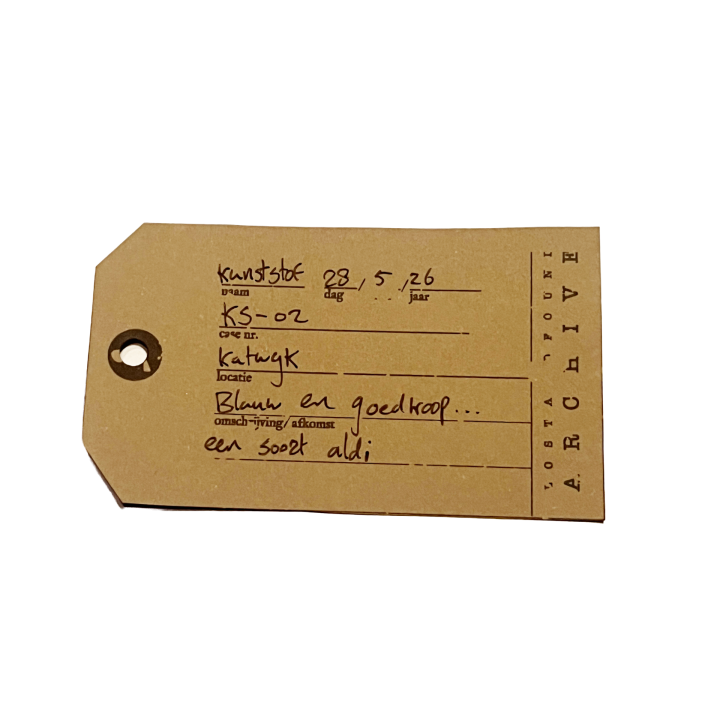 kunststof 28 / 5 / 26
naam dag jaar
KS-02
case nr.
Katwyk
locatie
Blauw en goedkoop...
omschrijving/ afkomst
een soort aldi
LOST A FOUND
ARChIVE